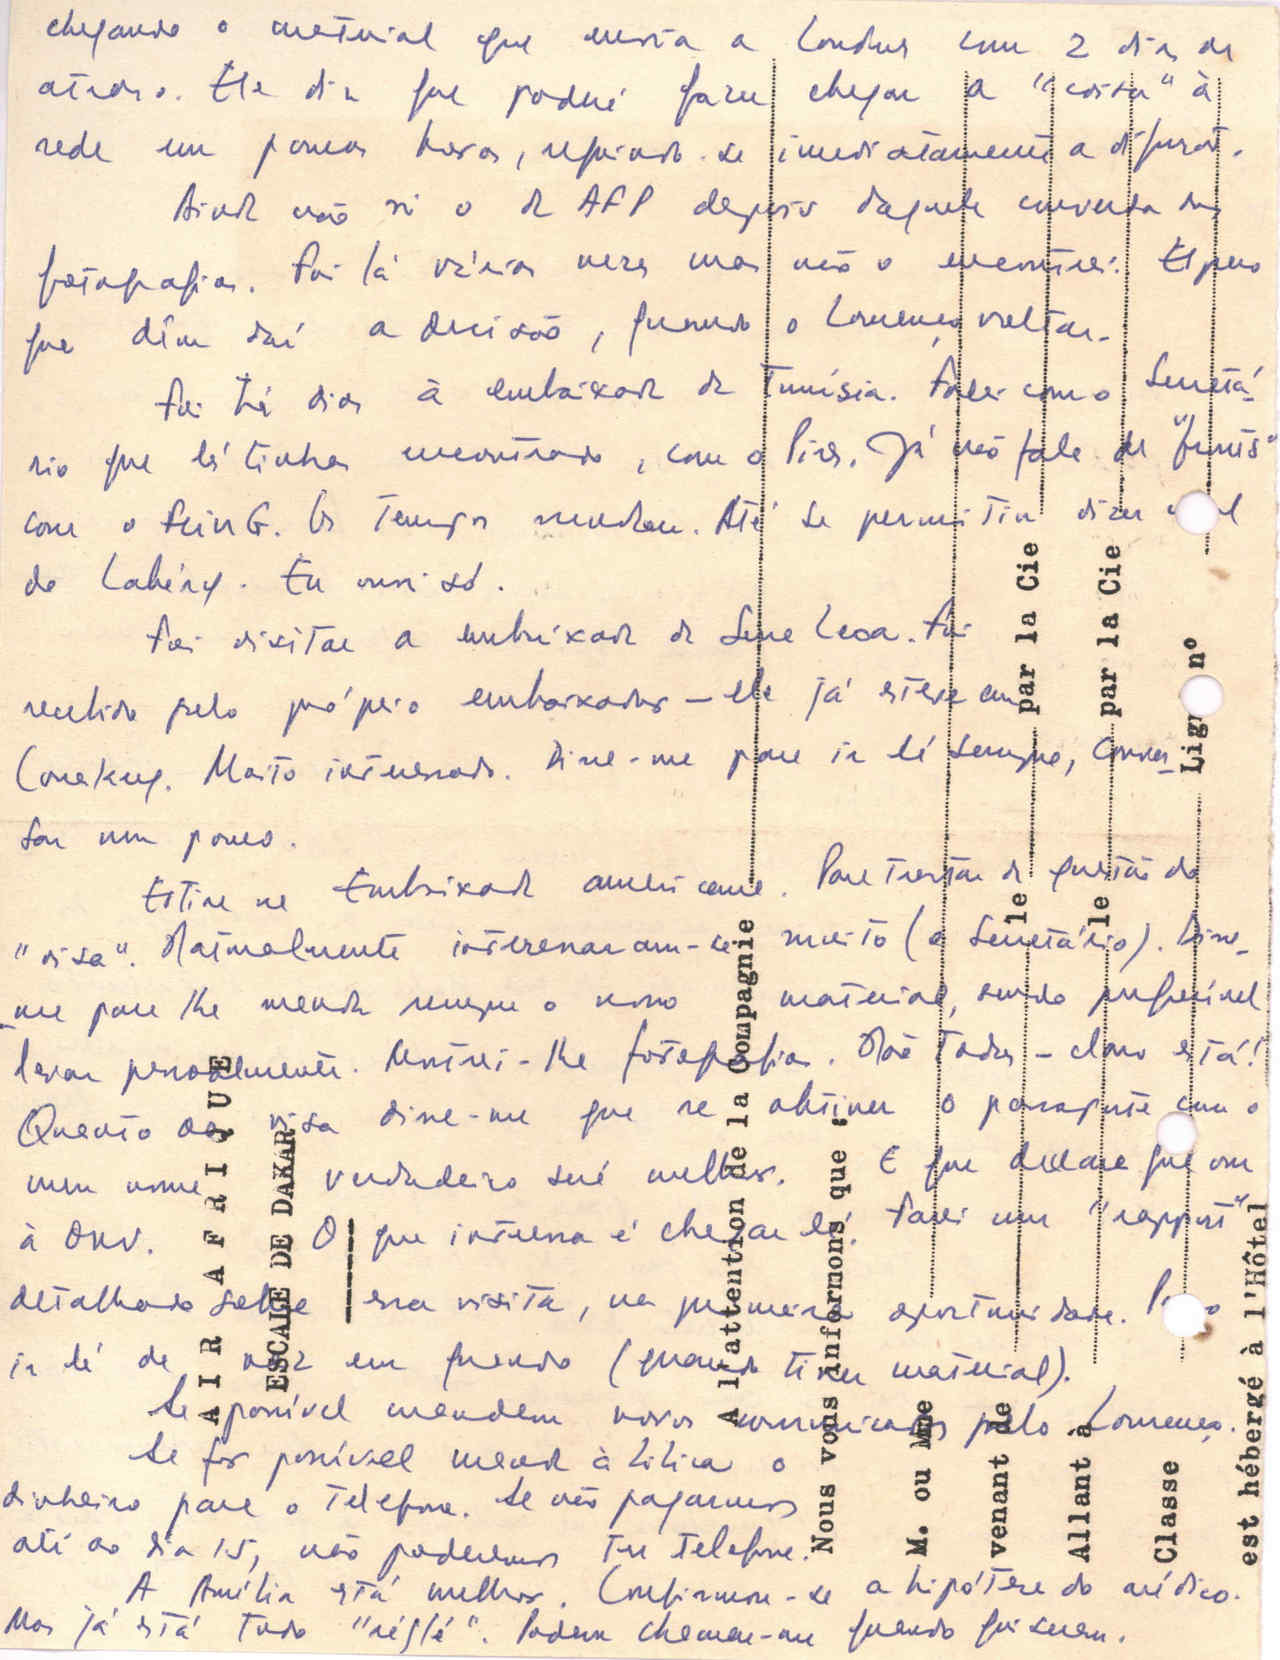 chegando o material que envia a Londres com 2 dias de
atraso. Ele diz que poderá fazer chegar a "coisa" à
rede em poucas horas, seguindo-se imediatamente a difusão.
Ainda não vi o da AFP depois daquela conversa das
fotografias. Fui lá várias vezes mas não o encontrei. Espero
que dêm daí a decisão, quando o Lourenço voltar.
Fui há dias à embaixada da Tunísia. Falei com o Secretá-
rio que lá tinha encontrado, com o Pires. Já não fala de
com o Os tempos mudam. Até se permitiu dizer mal
do Eu ouvi só.
Fui visitar a embaixada de Serra Leoa. Fui
recebido pelo próprio embaixador — ele já esteve em
Conakry. Muito interessado. Disse-me para ir lá sempre, conver-
sar um pouco.
Estive na Embaixada americana. Para tratar da questão do
"visa". Naturalmente interessaram-se muito (o Secretário). Disse-
-me para lhe mandar sempre o nosso material, sendo preferível
levar pessoalmente. Mostrei-lhe fotografias. Não todas — claro está!
Quanto ao visa disse-me que se obtiver o passaporte com o
meu nome verdadeiro será melhor. E que declare que vou
à ONU. O que interessa é chegar lá. Farei um "rapport"
detalhado sobre essa visita, na primeira oportunidade. Posso
ir lá de vez em quando (quando tiver material).
Se possível mandem novos comunicados pelo Lourenço.
Se for possível mandar à Lilica o
dinheiro para o telefone. Se não pagarmos
até ao dia 15, não poderemos ter telefone.
A Amélia está melhor. Confirmou-se a hipótese do médico.
Mas já está tudo "réglé". Podem chamar-me quando quiserem.
AIR AFRIQUE
ESCALE DE DAKAR
A l'attention de la Compagnie
Nous vous informons que :
M. ou Mme
venant de le par la Cie
Allant à le par la Cie
Classe Lig nº
est hébergé à l'Hôtel